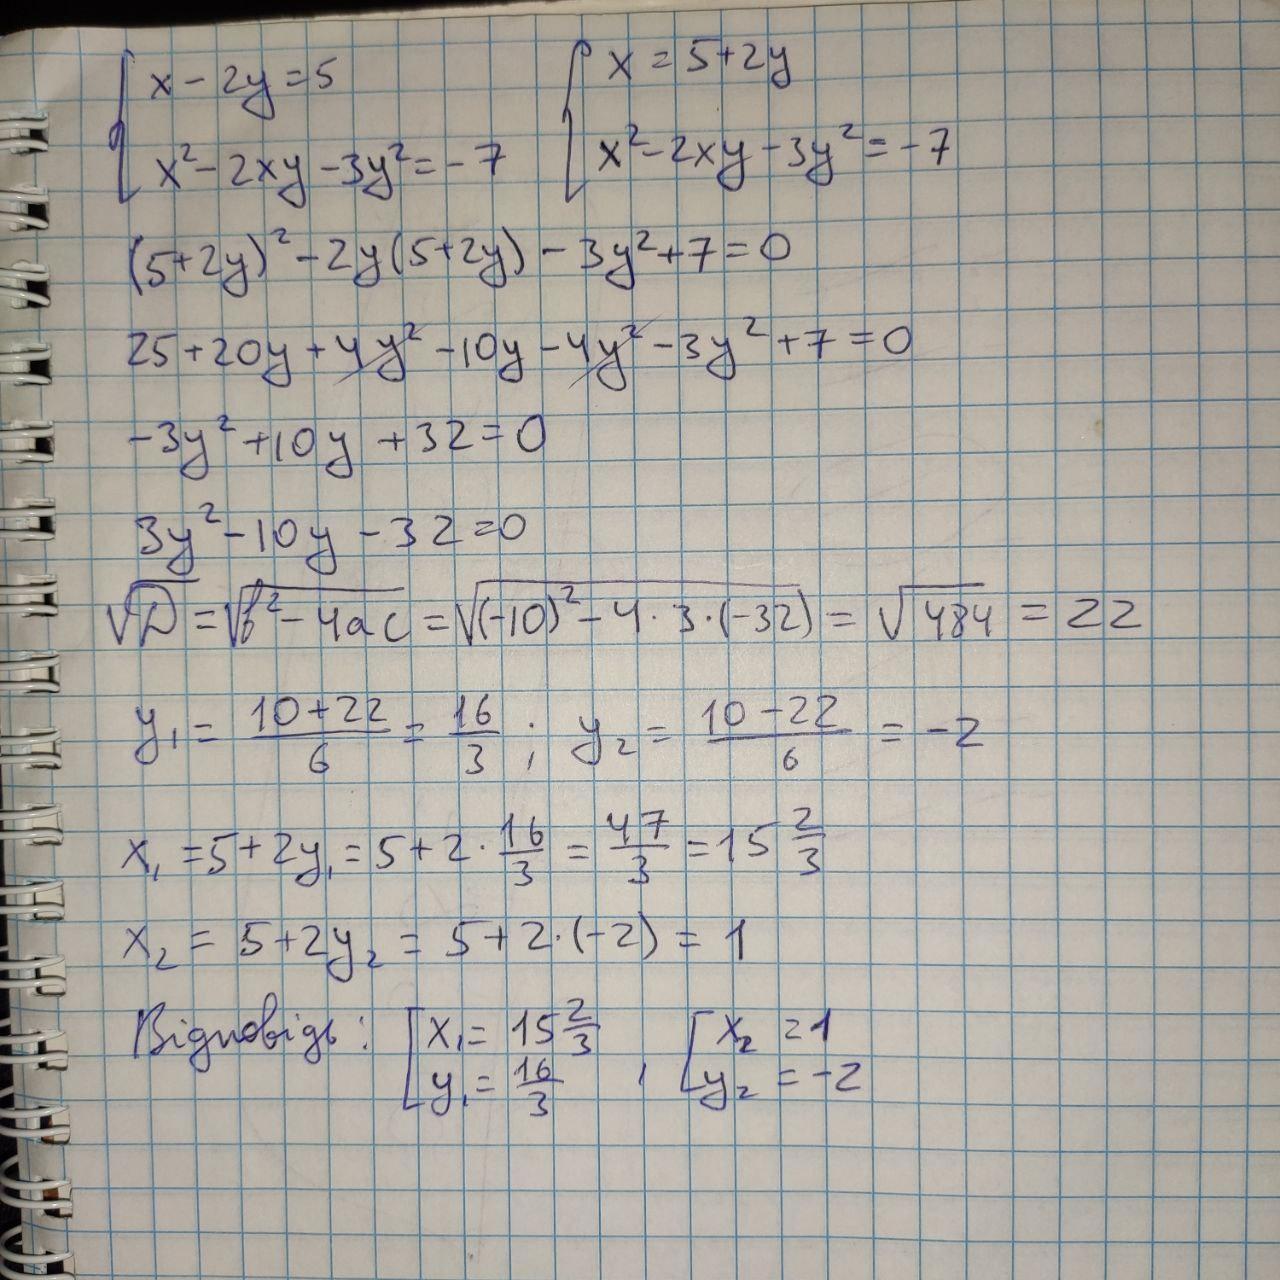 { x - 2y = 5 { x = 5+2y
x² - 2xy - 3y² = -7 x² - 2xy - 3y² = -7
(5+2y)² - 2y(5+2y) - 3y² + 7 = 0
25 + 20y + 4y² - 10y - 4y² - 3y² + 7 = 0
-3y² + 10y + 32 = 0
3y² - 10y - 32 = 0
√D = √b² - 4ac = √(-10)² - 4·3·(-32) = √484 = 22
y₁ = (10+22)/6 = 16/3 ; y₂ = (10-22)/6 = -2
x₁ = 5+2y₁ = 5+2·16/3 = 47/3 = 15 2/3
x₂ = 5+2y₂ = 5+2·(-2) = 1
Відповідь: [ x₁ = 15 2/3 , [ x₂ = 1
y₁ = 16/3 y₂ = -2